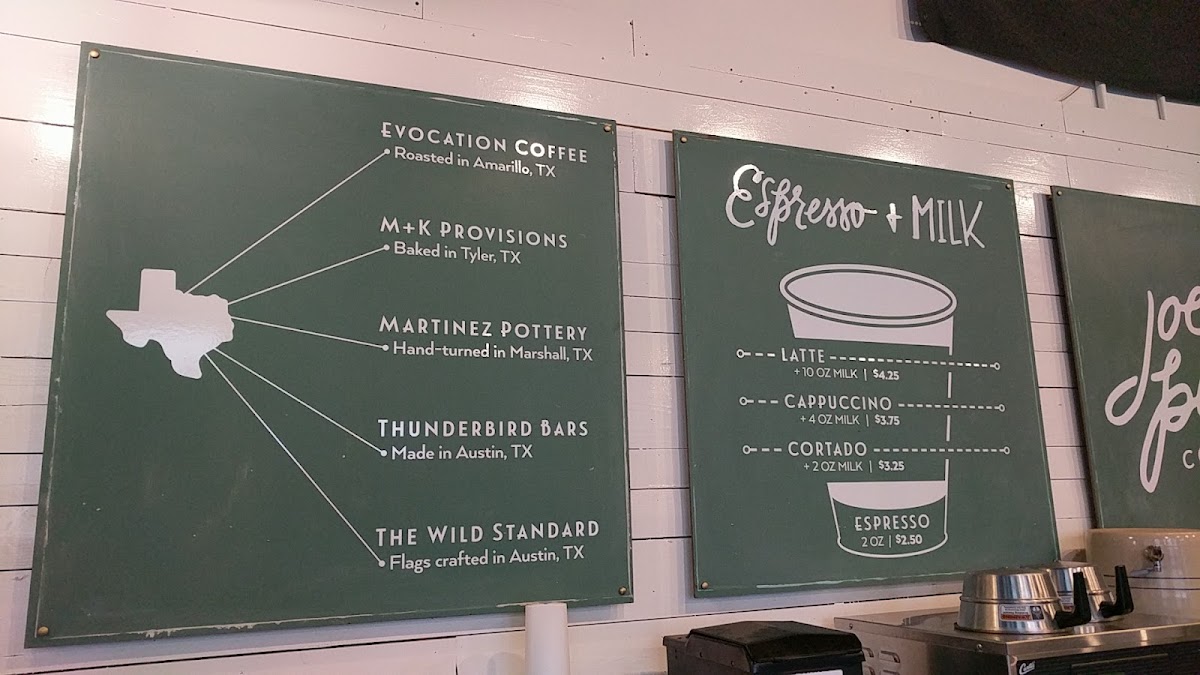 EVOCATION COFFEE
Roasted in Amarillo, TX
M+K PROVISIONS
Baked in Tyler, TX
MARTINEZ POTTERY
Hand-turned in Marshall, TX
THUNDERBIRD BARS
Made in Austin, TX
THE WILD STANDARD
Flags crafted in Austin, TX
Espresso + MILK
LATTE
+ 10 OZ MILK | $4.25
CAPPUCCINO
+ 4 OZ MILK | $3.75
CORTADO
+ 2 OZ MILK | $3.25
ESPRESSO
2 OZ | $2.50
Joe
Curtis